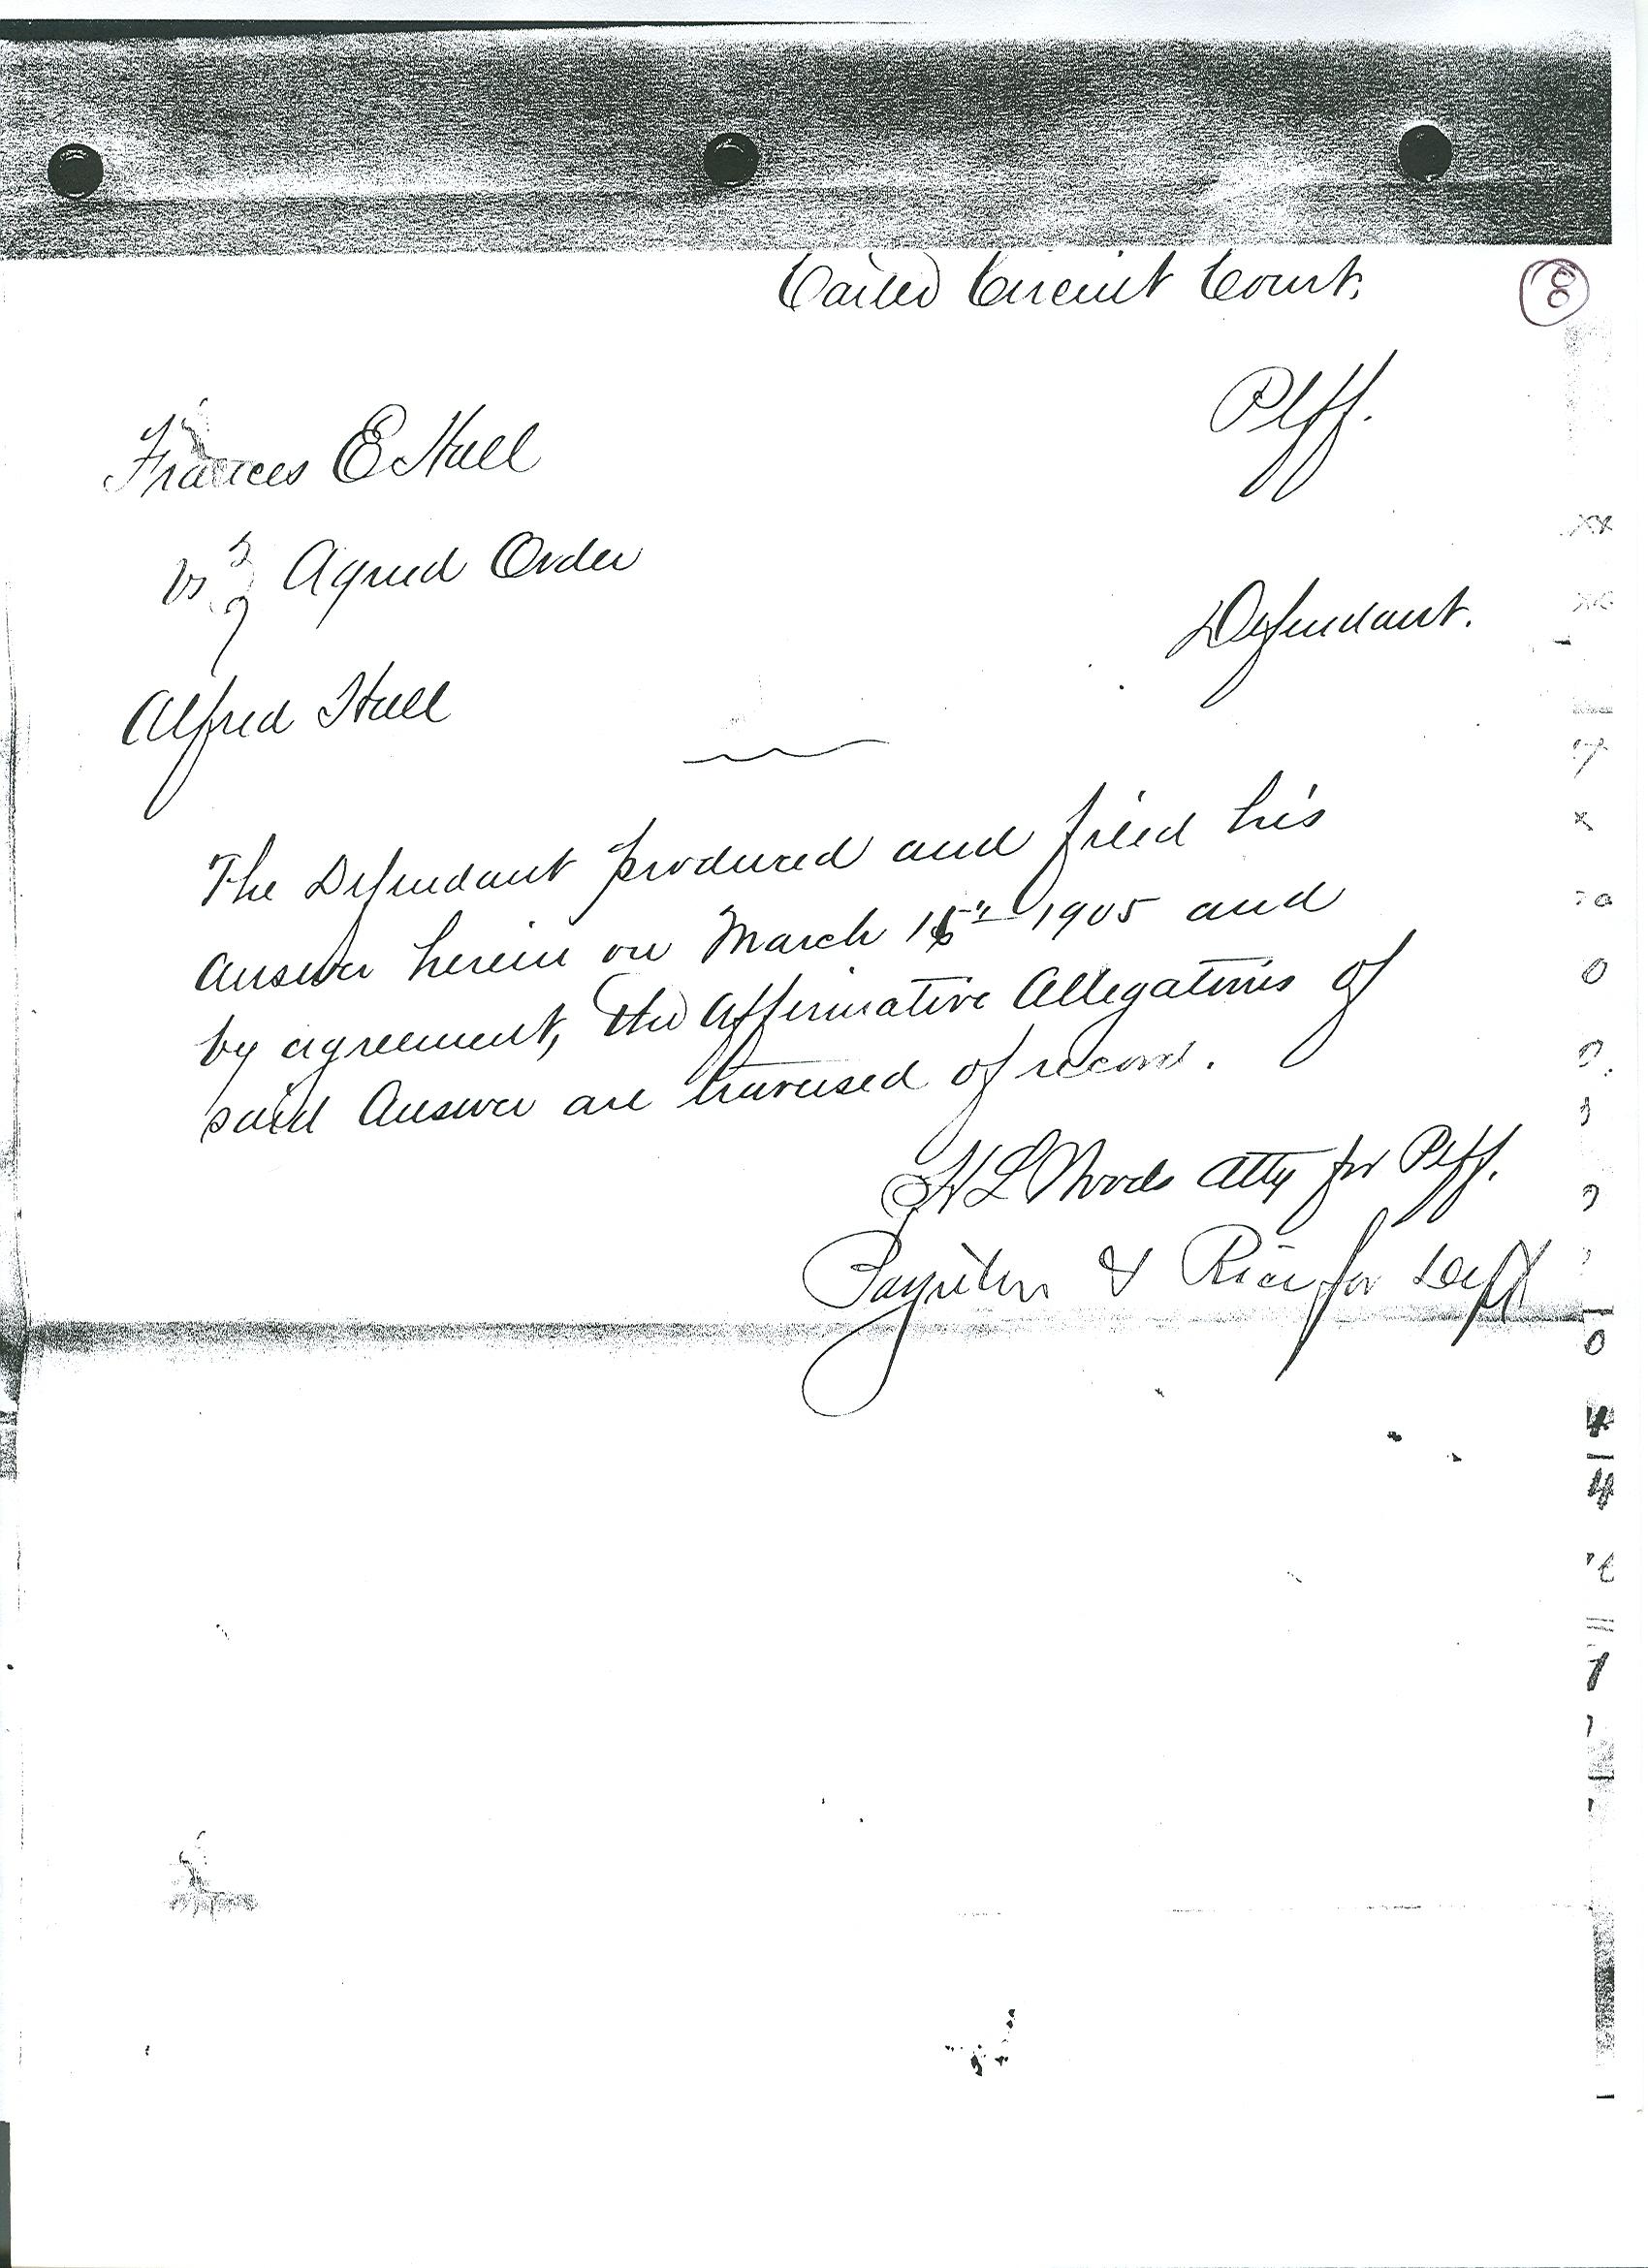 Carter Circuit Court.
8
Plff.
Frances E Hall
vs Agreed Order
Defendant.
Alfred Hall
The Defendant produced and filed his
Answer herein on March 1905 and
by agreement, the Affirmative Allegations of
said Answer are traversed of record.
H L Woods Atty for Plff.
& Rice for Deft